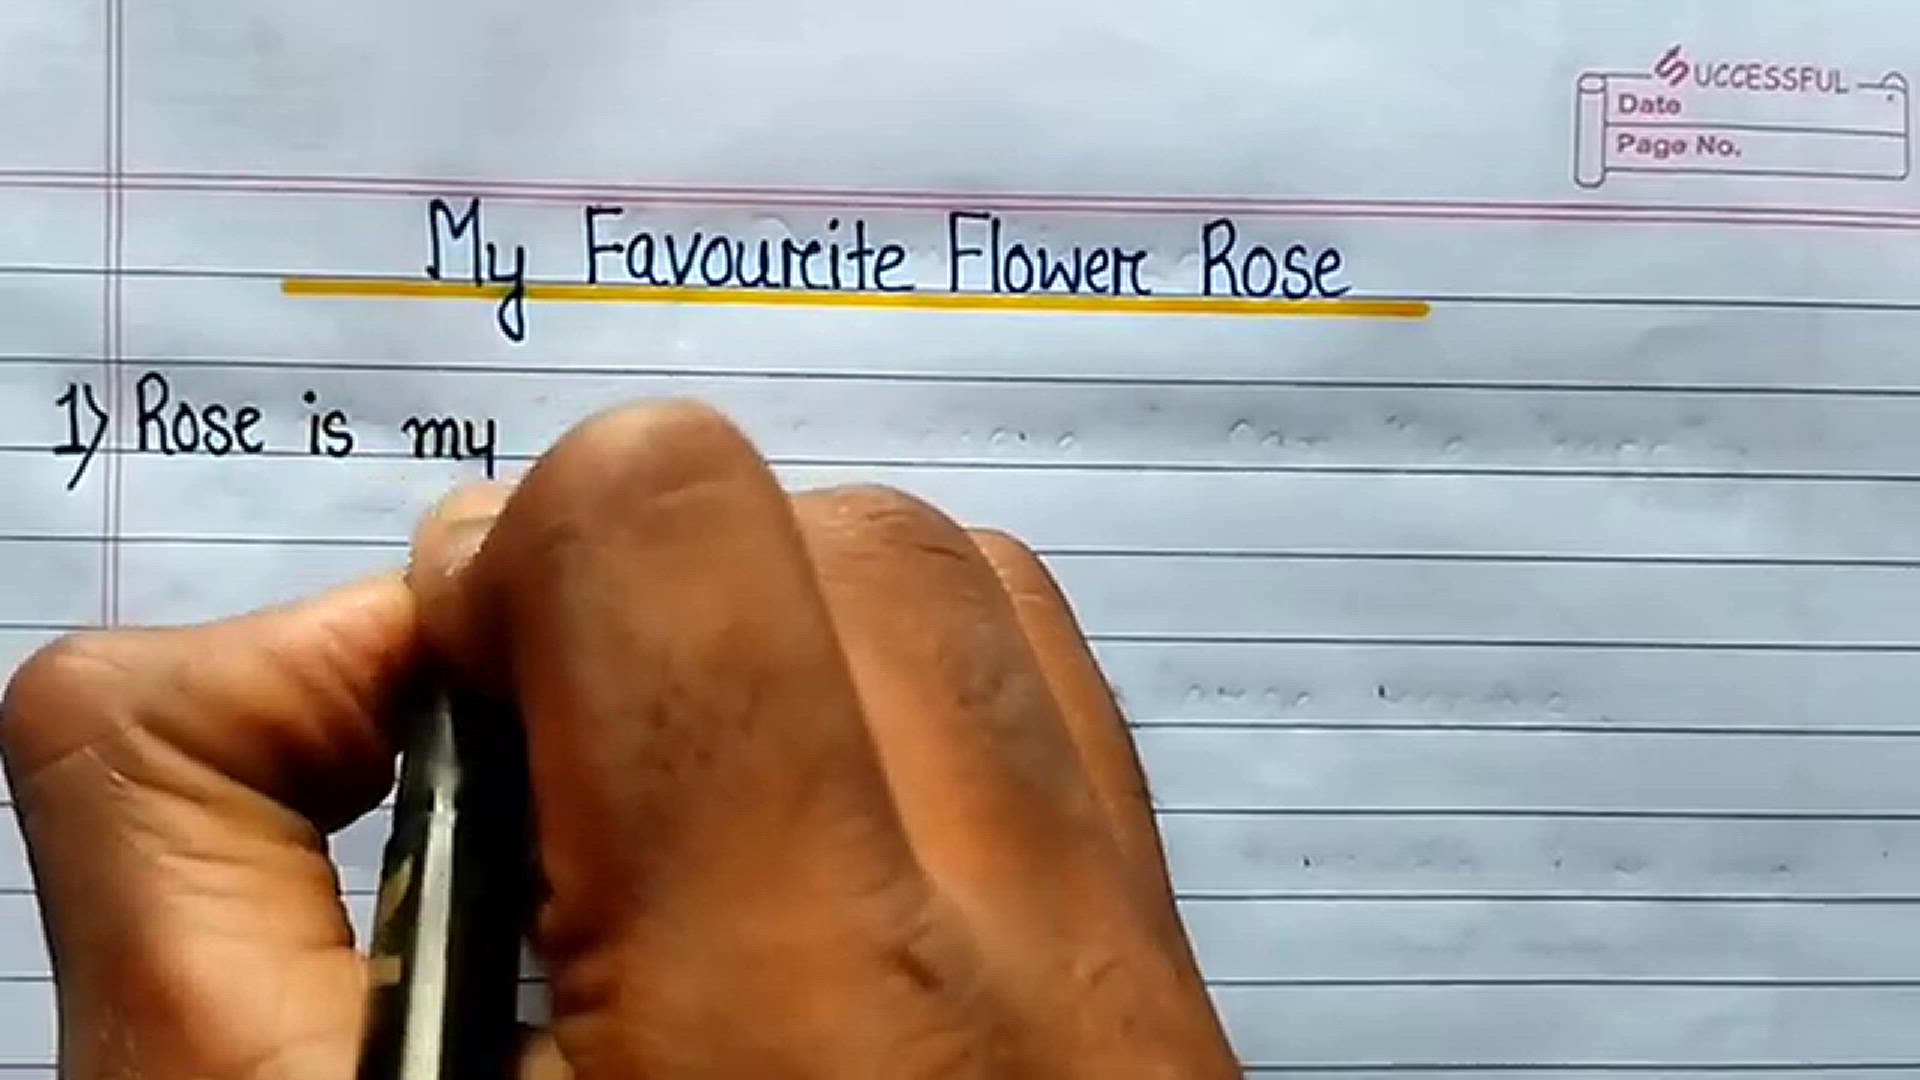 SUCCESSFUL
Date
Page No.
My Favourite Flower Rose
1) Rose is my